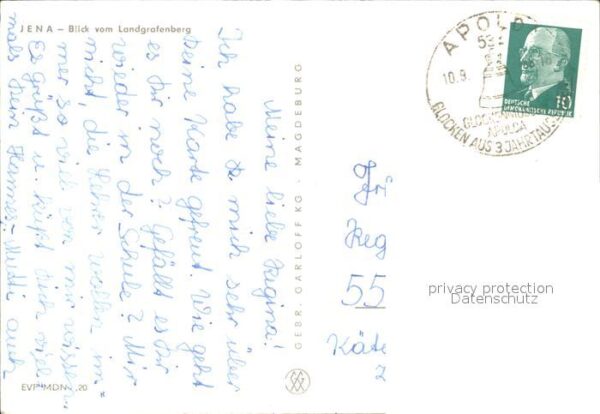 JENA – Blick vom Landgrafenberg
Meine liebe Regina!
Ich habe mich sehr über
Deine Karte gefreut. Wie geht
es Dir noch? Gefällt es Dir
wieder in der Schule? Mir
nicht, die Lehrer wollen im-
mer so viel von mir wissen.
Es grüßt u. küßt Dich viel-
mals Dein Hannes – Mutti auch
EVP MDN -,20
GEBR. GARLOFF KG · MAGDEBURG
APOLD
53
10.9.
GLOCKEN AUS 3 JAHRTAUS
APOLDA
DEUTSCHE
DEMOKRATISCHE REPUBLIK
10
Reg
55
Käte
privacy protection
Datenschutz